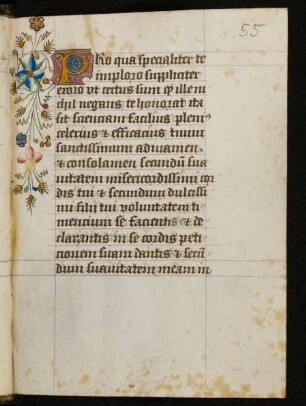 55
Pro qua specialiter te
imploro suppliciter
oro vt certus sum q ille ni
chil negans te honorat ita
sit facilius pleni
celerius & efficatius tuum
sanctissimum adiuuamen.
& consolamen secundū sua
uitatem misericordissimi cor
dis tui & secundum dulcissi
mi filii tui voluntatem ti
mencium se facientis & de
clarantis in se cordis peti
cionem suam dantis & secū
dum suauitatem meam in